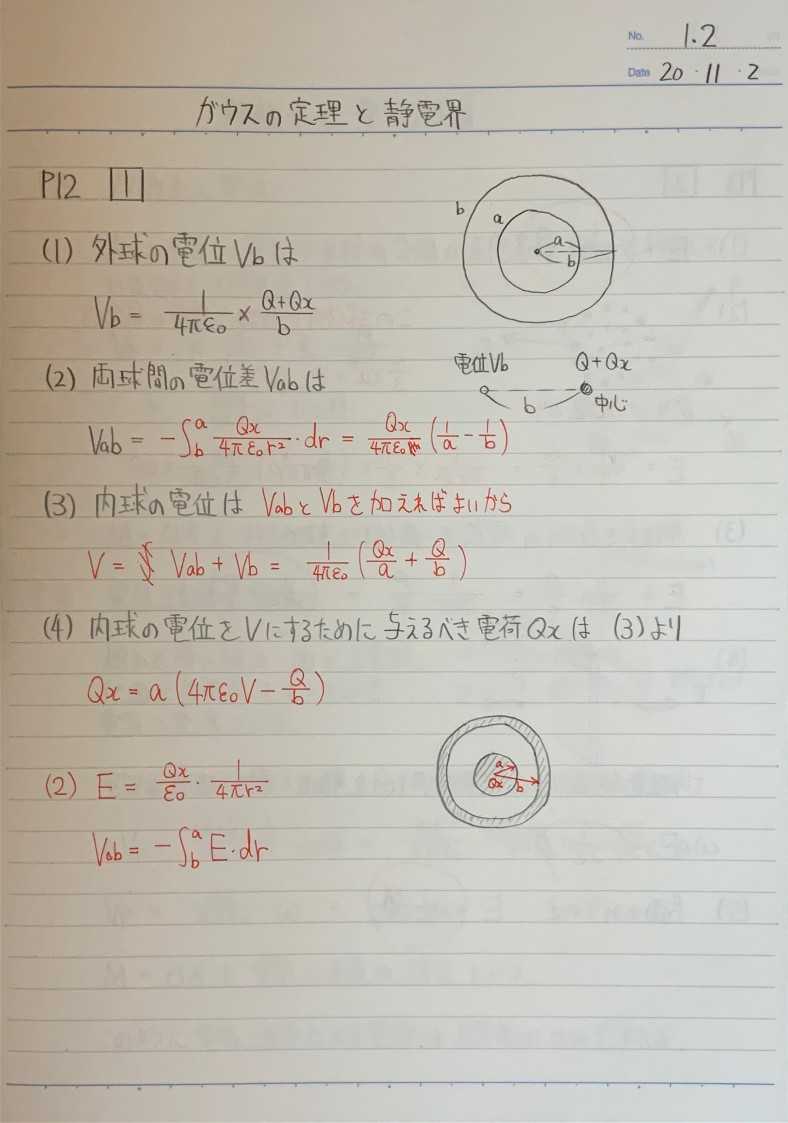 No. 1.2
Date 20 ・ 11 ・ 2
ガウスの定理と静電界
P12 1
(1) 外球の電位Vbは
Vb = 1/4πε0 × Q+Qx/b
b
a
a
b
(2) 両球間の電位差Vabは
電位Vb Q+Qx
b 中心
Vab = -∫_b^a Qx/4πε0r²・dr = Qx/4πε0 (1/a - 1/b)
(3) 内球の電位は VabとVbを加えればよいから
V = Vab + Vb = 1/4πε0 (Qx/a + Q/b)
(4) 内球の電位をVにするために与えるべき電荷Qxは (3)より
Qx = a (4πε0V - Q/b)
(2) E = Qx/ε0 ・ 1/4πr²
a
Qx b
Vab = -∫_b^a E・dr